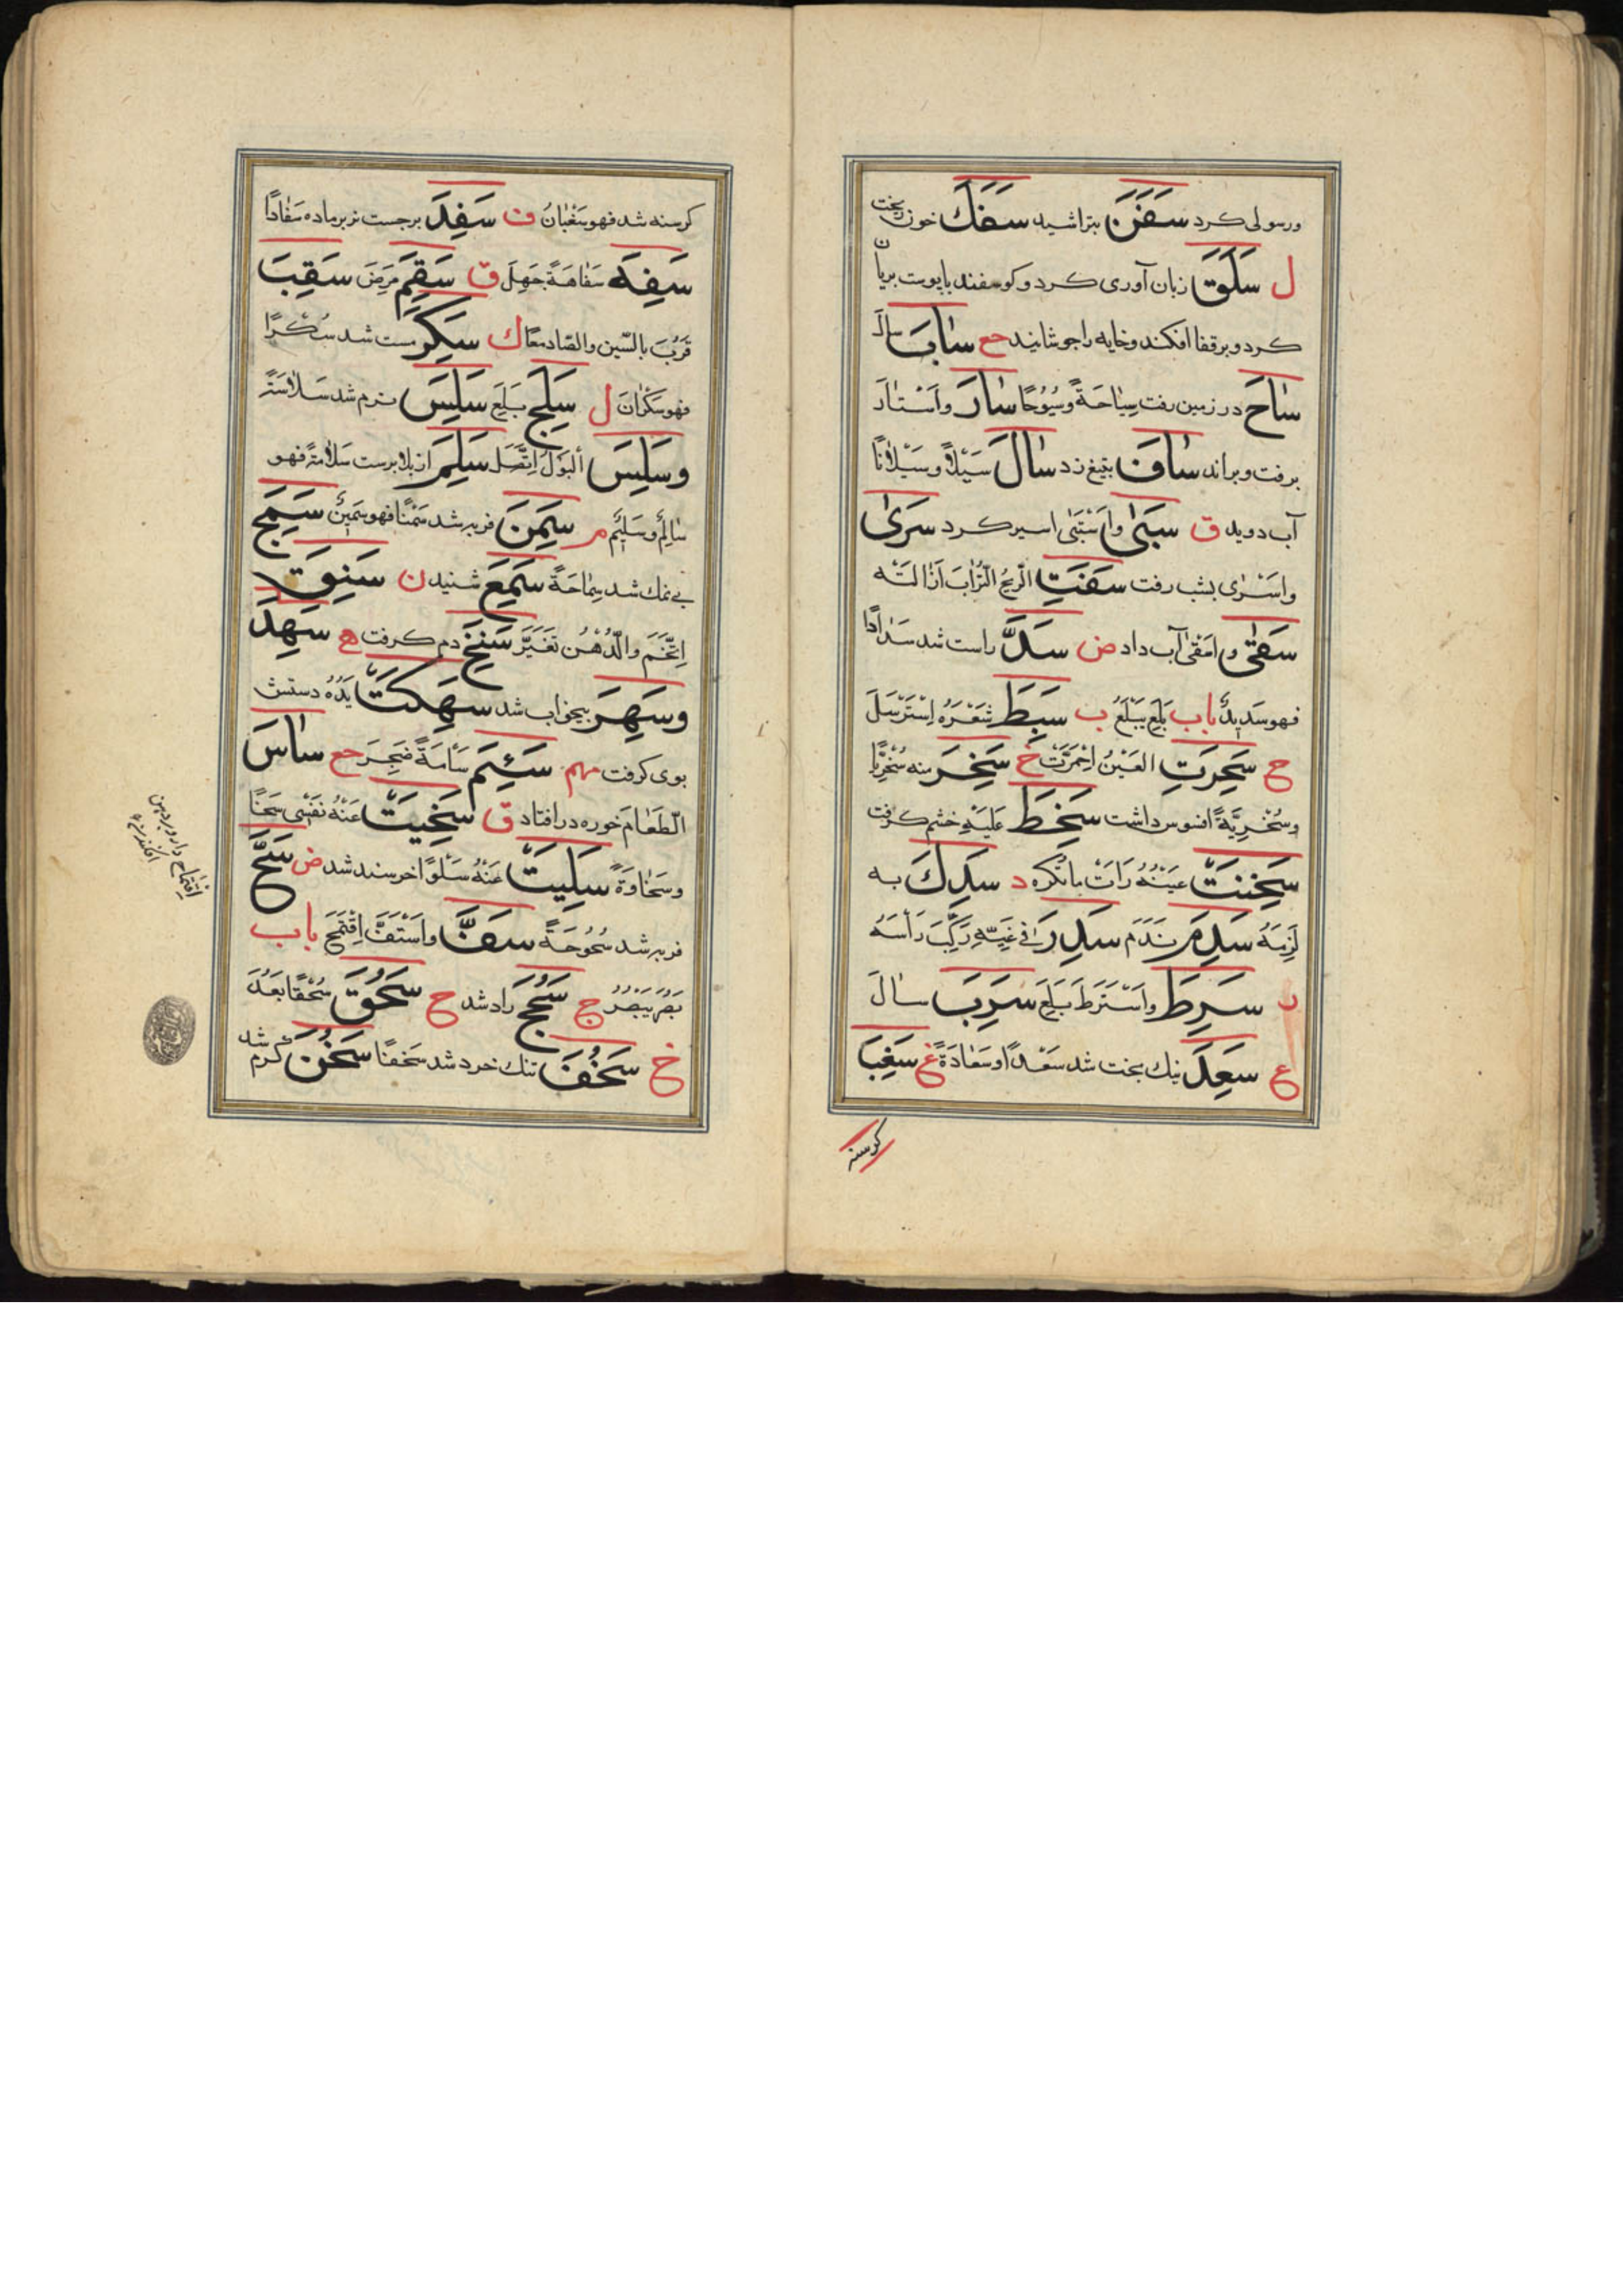 ورسولی کرد سَفَنَ بتراشید سَفَكَ خون ریخت
ل سَلَقَ زبان آوری کرد و کوسفند باپوست بریان
کرد و برقفا افکند و خایه را جوشانید حع سٰابَ سالَ
سٰاحَ در زمین رفت سِیٰاحَةً وسُیُوُحًا سٰارَ واَسْتٰارَ
برفت و براند سٰافَ بتیغ زد سٰالَ سَیْلاً وسَیْلاٰنًا
آب دوید ق سَبَیٰ واَسْتَبَیٰ اسیر کرد سَرَیٰ
واَسْرٰی بشب رفت سَفَتِ الّریحُ الّتُرٰابَ اَذٰالَتْه
سَقٰی واَسْقٰی آب داد ض سَدَّ راست شد سَدٰادًا
فهو سَدیدٌ باب بَلِعَ یَبْلَعُ ب سَبِطَ شَعْرُه اِسْتَرْسَلَ
ح سَحِرَتِ العَیْنُ اِحْمَرَّتْ خ سَخِرَ منه سُخْرِیًّا
وسُخْرِیَّةً افسوس داشت سَخِطَ عَلَیْهِ خشم کرفت
سَخِنَتْ عَیْنُهُ رَاَتْ مٰا تَکْرَه د سَدِكَ به
لَزِمَهُ سَدِمَ نَدَم سَدِرَ فی غَیِّهِ رَکِبَ رَاْسَهُ
ر سَرِطَ واَسْتَرَطَ بَلِعَ سَرِبَ سٰالَ
ع سَعِدَ نیك بخت شد سَعْدًا وسَعٰادَةً غ سَغِبَ
کرسنه
کرسنه شد فهو سَغْبٰانُ ف سَفِدَ برجست نر بر ماده سَفٰادًا
سَفِهَ سَفٰاهَةً جَهِلَ ق سَقِمَ مَرِضَ سَقِبَ
قَرُبَ بالسّین والصّاد معًا ك سَکِرَ مست شد سُکْرًا
فهو سَکْرٰانَ ل سَلِجَ بَلِعَ سَلِسَ نرم شد سَلاٰسَةً
وسَلِسَ اَلبَوْلُ اِتَّصَلَ سَلِمَ از بلا برست سَلاٰمَةً فهو
سٰالِمٌ وسَلیمٌ م سَمِنَ فربه شد سَمْنًا فهو سَمینٌ سَمِجَ
بی نمك شد سَمٰاحَةً سَمِعَ شنید ن سَنِقَ
اِتَّخَمَ والّدُهْن تَغَیَّرَ سَنِخَ دم کرفت ه سَهِدَ
وسَهِرَ بیخواب شد سَهِکَتْ یَدُهُ دستش
بوی کرفت مهم سَئِمَ سَأمَةً ضَجِرَ حع سٰاسَ
الّطَعٰامَ خوره در افتاد ق سَخِیَتْ عَنْهُ نَفْسی سَخًا
وسَخٰاوَةً سَلِیَتْ عَنْهُ سَلْوًا خرسند شد ض سَحَّ
فربه شد سُحُوحَةً سَفَّ واَسْتَفَّ اِقْتَمَحَ باب
بَصُرَ یَبْصُرُ ج سَجُحَ راد شد ح سَحُقَ سُحْقًا بَعُدَ
خ سَخُفَ تنك خرد شد سَخفًا سَخُنَ کرم شد
اقتماح دارو بدهن